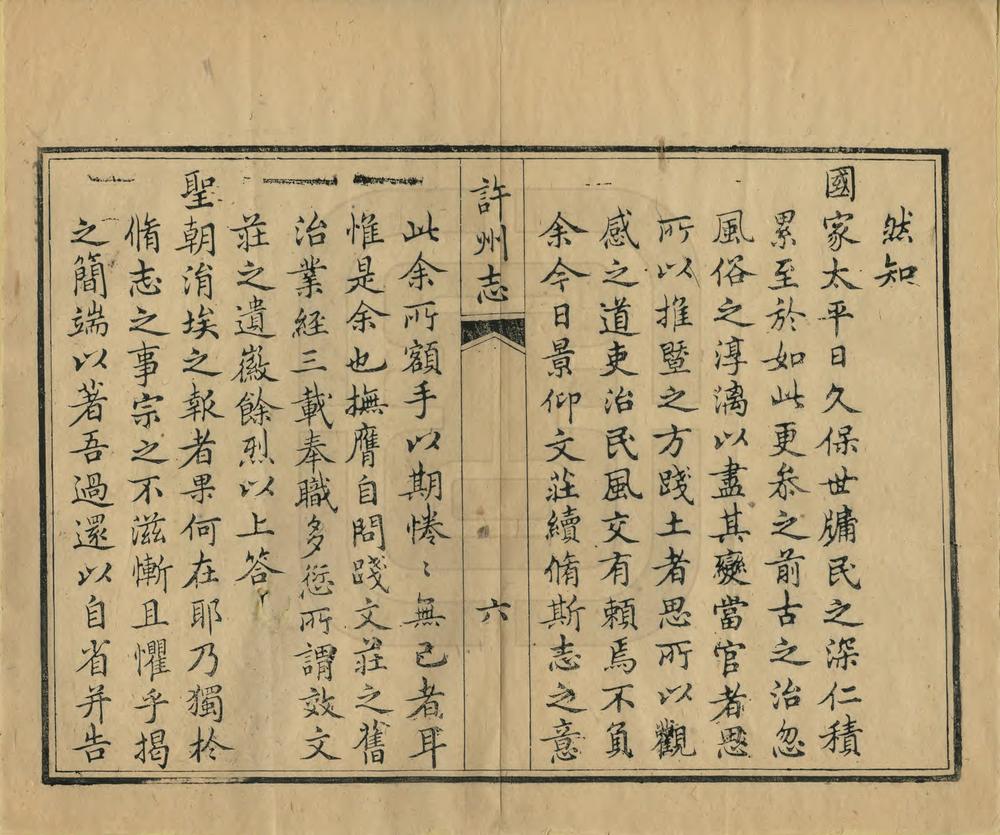 然知
國家太平日久保世牖民之深仁積
累至於如此更叅之前古之治忽
風俗之淳漓以盡其變當官者思
所以推暨之方踐土者思所以觀
感之道吏治民風交有賴焉不負
余今日景仰文莊續脩斯志之意
許州志
六
此余所額手以期惓〻無已者耳
惟是余也撫膺自問踐文莊之舊
治業経三載奉職多愆所謂效文
莊之遺徽餘烈以上答
聖朝涓埃之報者果何在耶乃獨於
脩志之事宗之不滋慚且懼乎揭
之簡端以著吾過還以自省并告